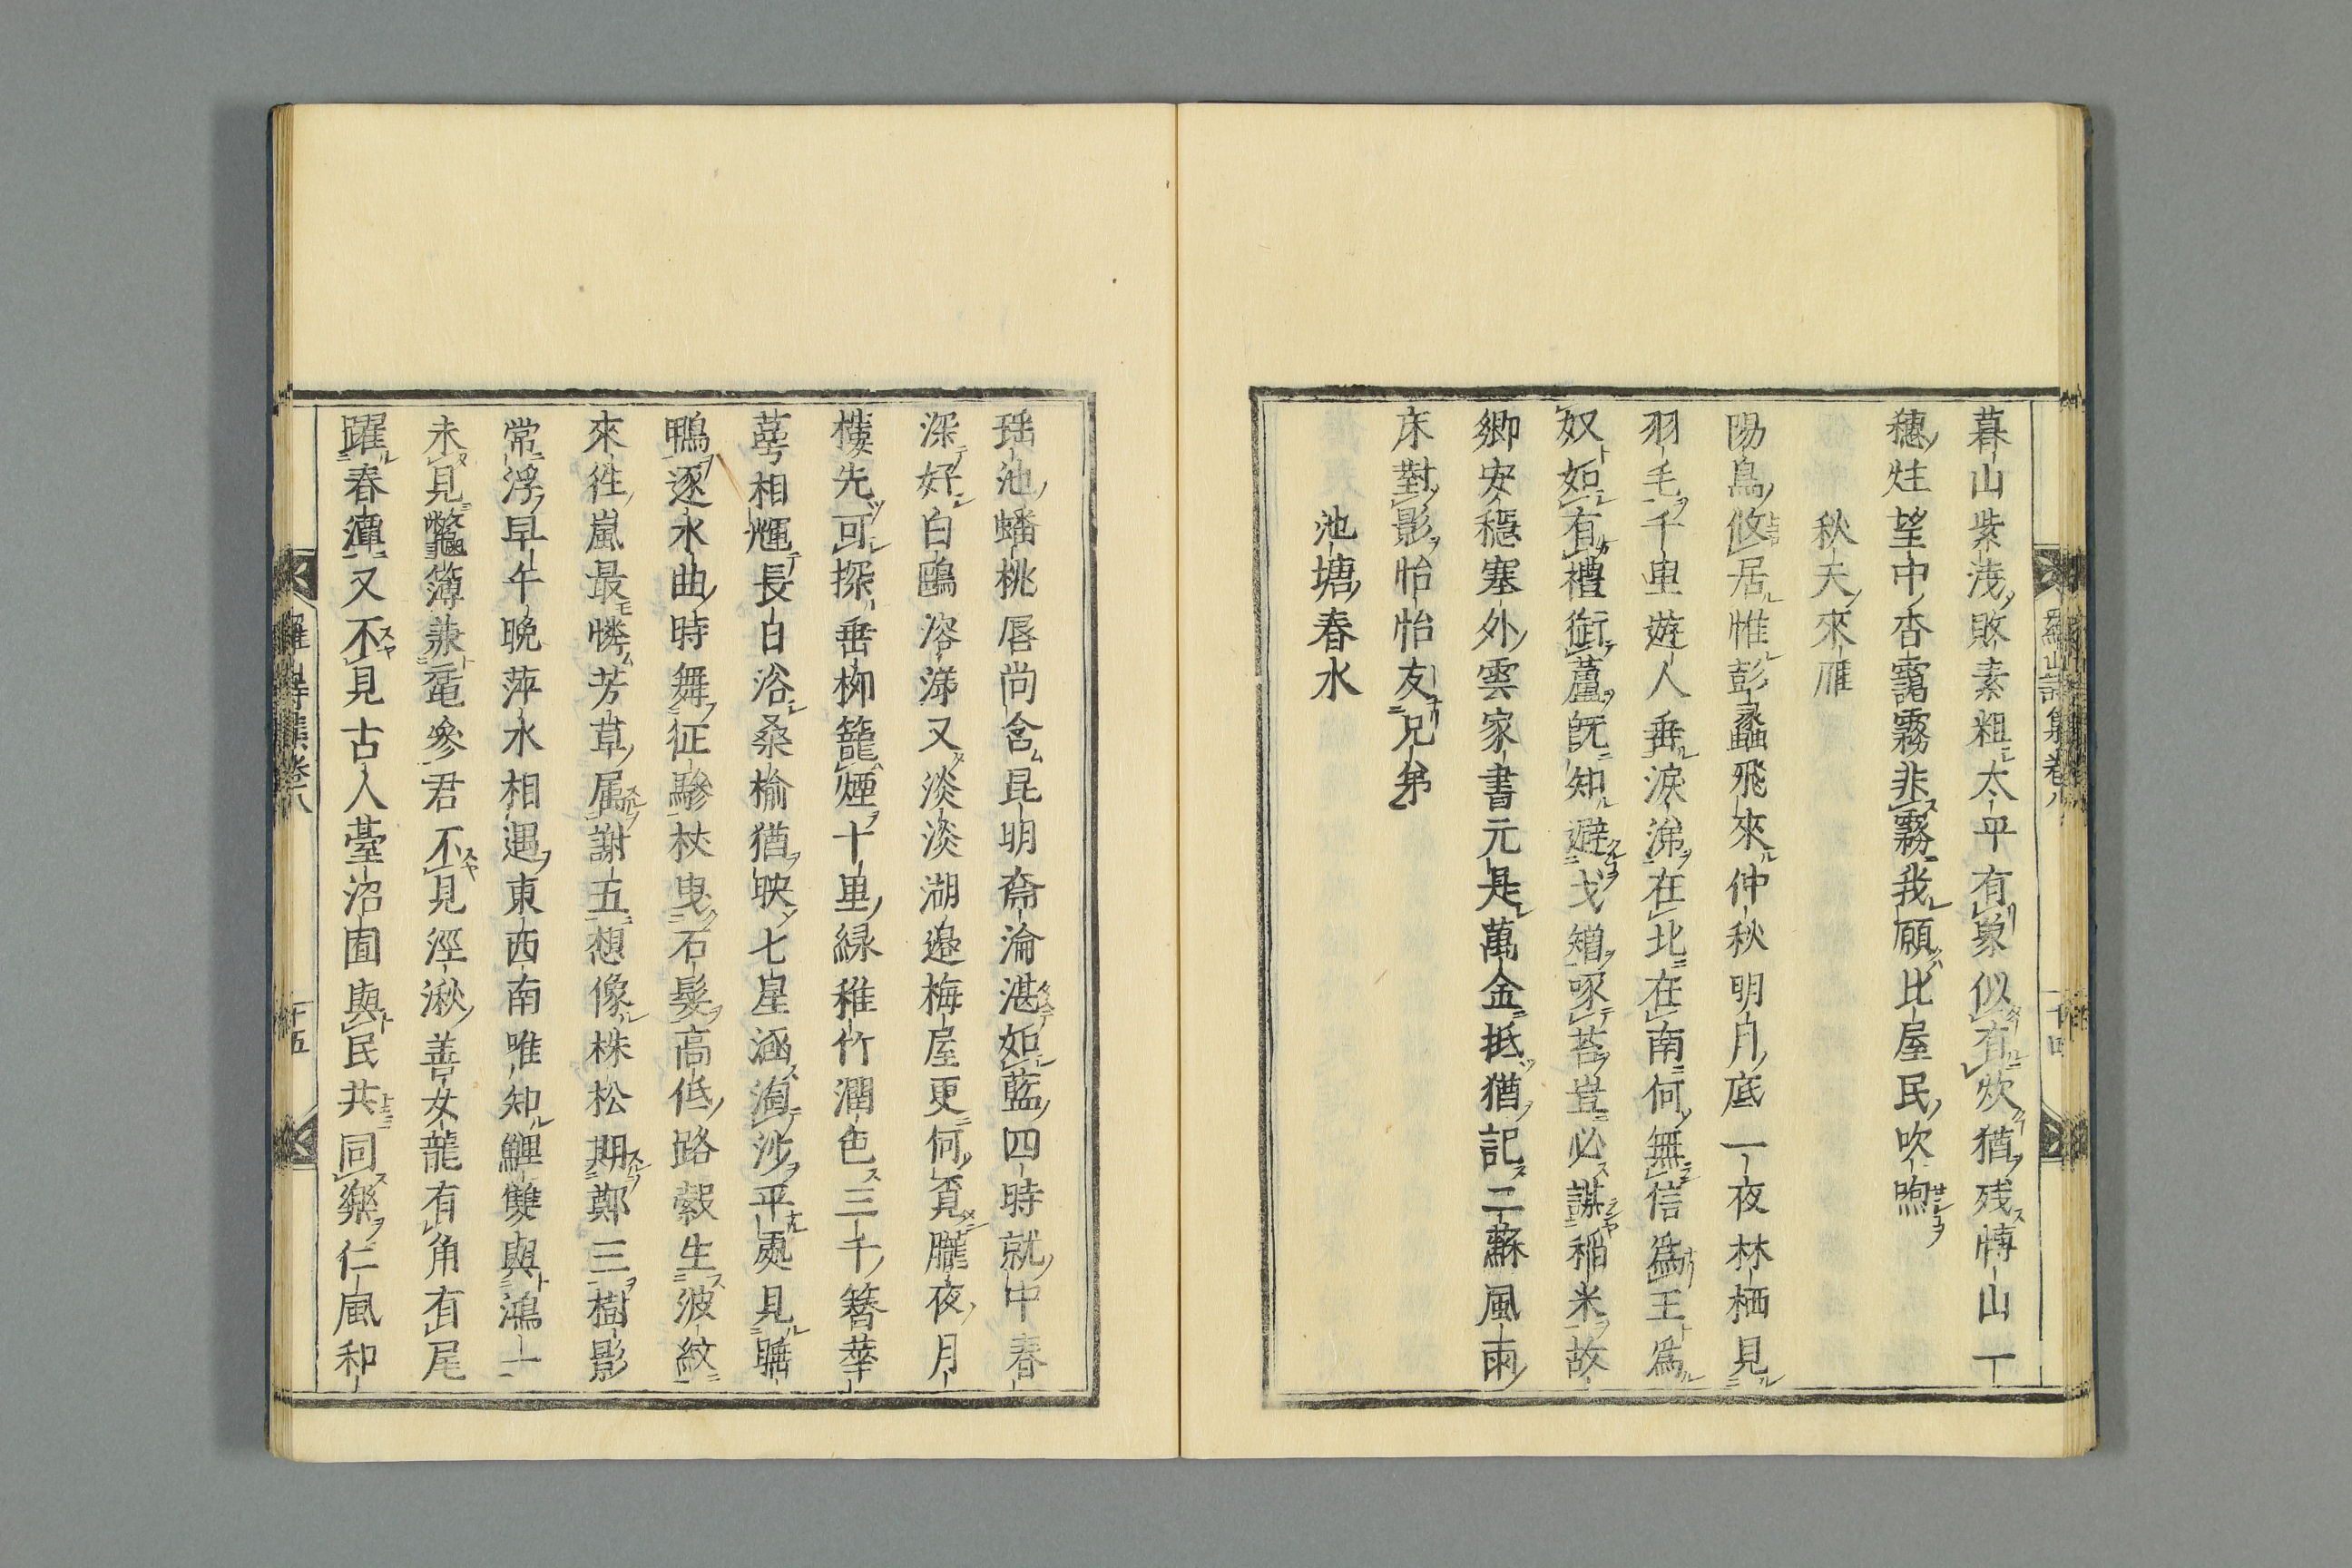 暮山紫淺敗素粗太平有象似有炊猶殘慱山一
穗炷望中杏靄霧非霧我願比屋民吹煦
秋天來雁
陽鳥攸居惟彭蠡飛來仲秋明月底一夜林栖見
羽毛千里遊人垂淚涕在北在南何無信爲王爲
奴如有禮銜蘆旣知避弋矰啄苔豈必謀稻米故
鄉安穩塞外雲家書元是萬金抵猶記二蘇風雨
床對影怡怡友兄弟
池塘春水
羅山詩集卷八
十四
瑤池蟠桃唇尚含昆明奫淪湛如藍四時就中春
深好白鷗溶漾又淡淡湖邊梅屋更何覔朧夜月
樓先可探垂柳籠煙十里綠稚竹潤色三千簪華
萼相輝長日浴桑榆猶映七星涵淘沙平處見睡
鴨逐水曲時舞征驂杖曳石髮高低路縠生波紋
來徃嵐最憐芳草属謝五想像株松期鄭三樹影
常浮早午晚萍水相遇東西南唯知鯉雙與鴻一
未見鼈簿兼黿參君不見涇湫善女龍有角有尾
躍春潭又不見古人臺沼囿與民共同樂仁風和
羅山詩集卷八
十五